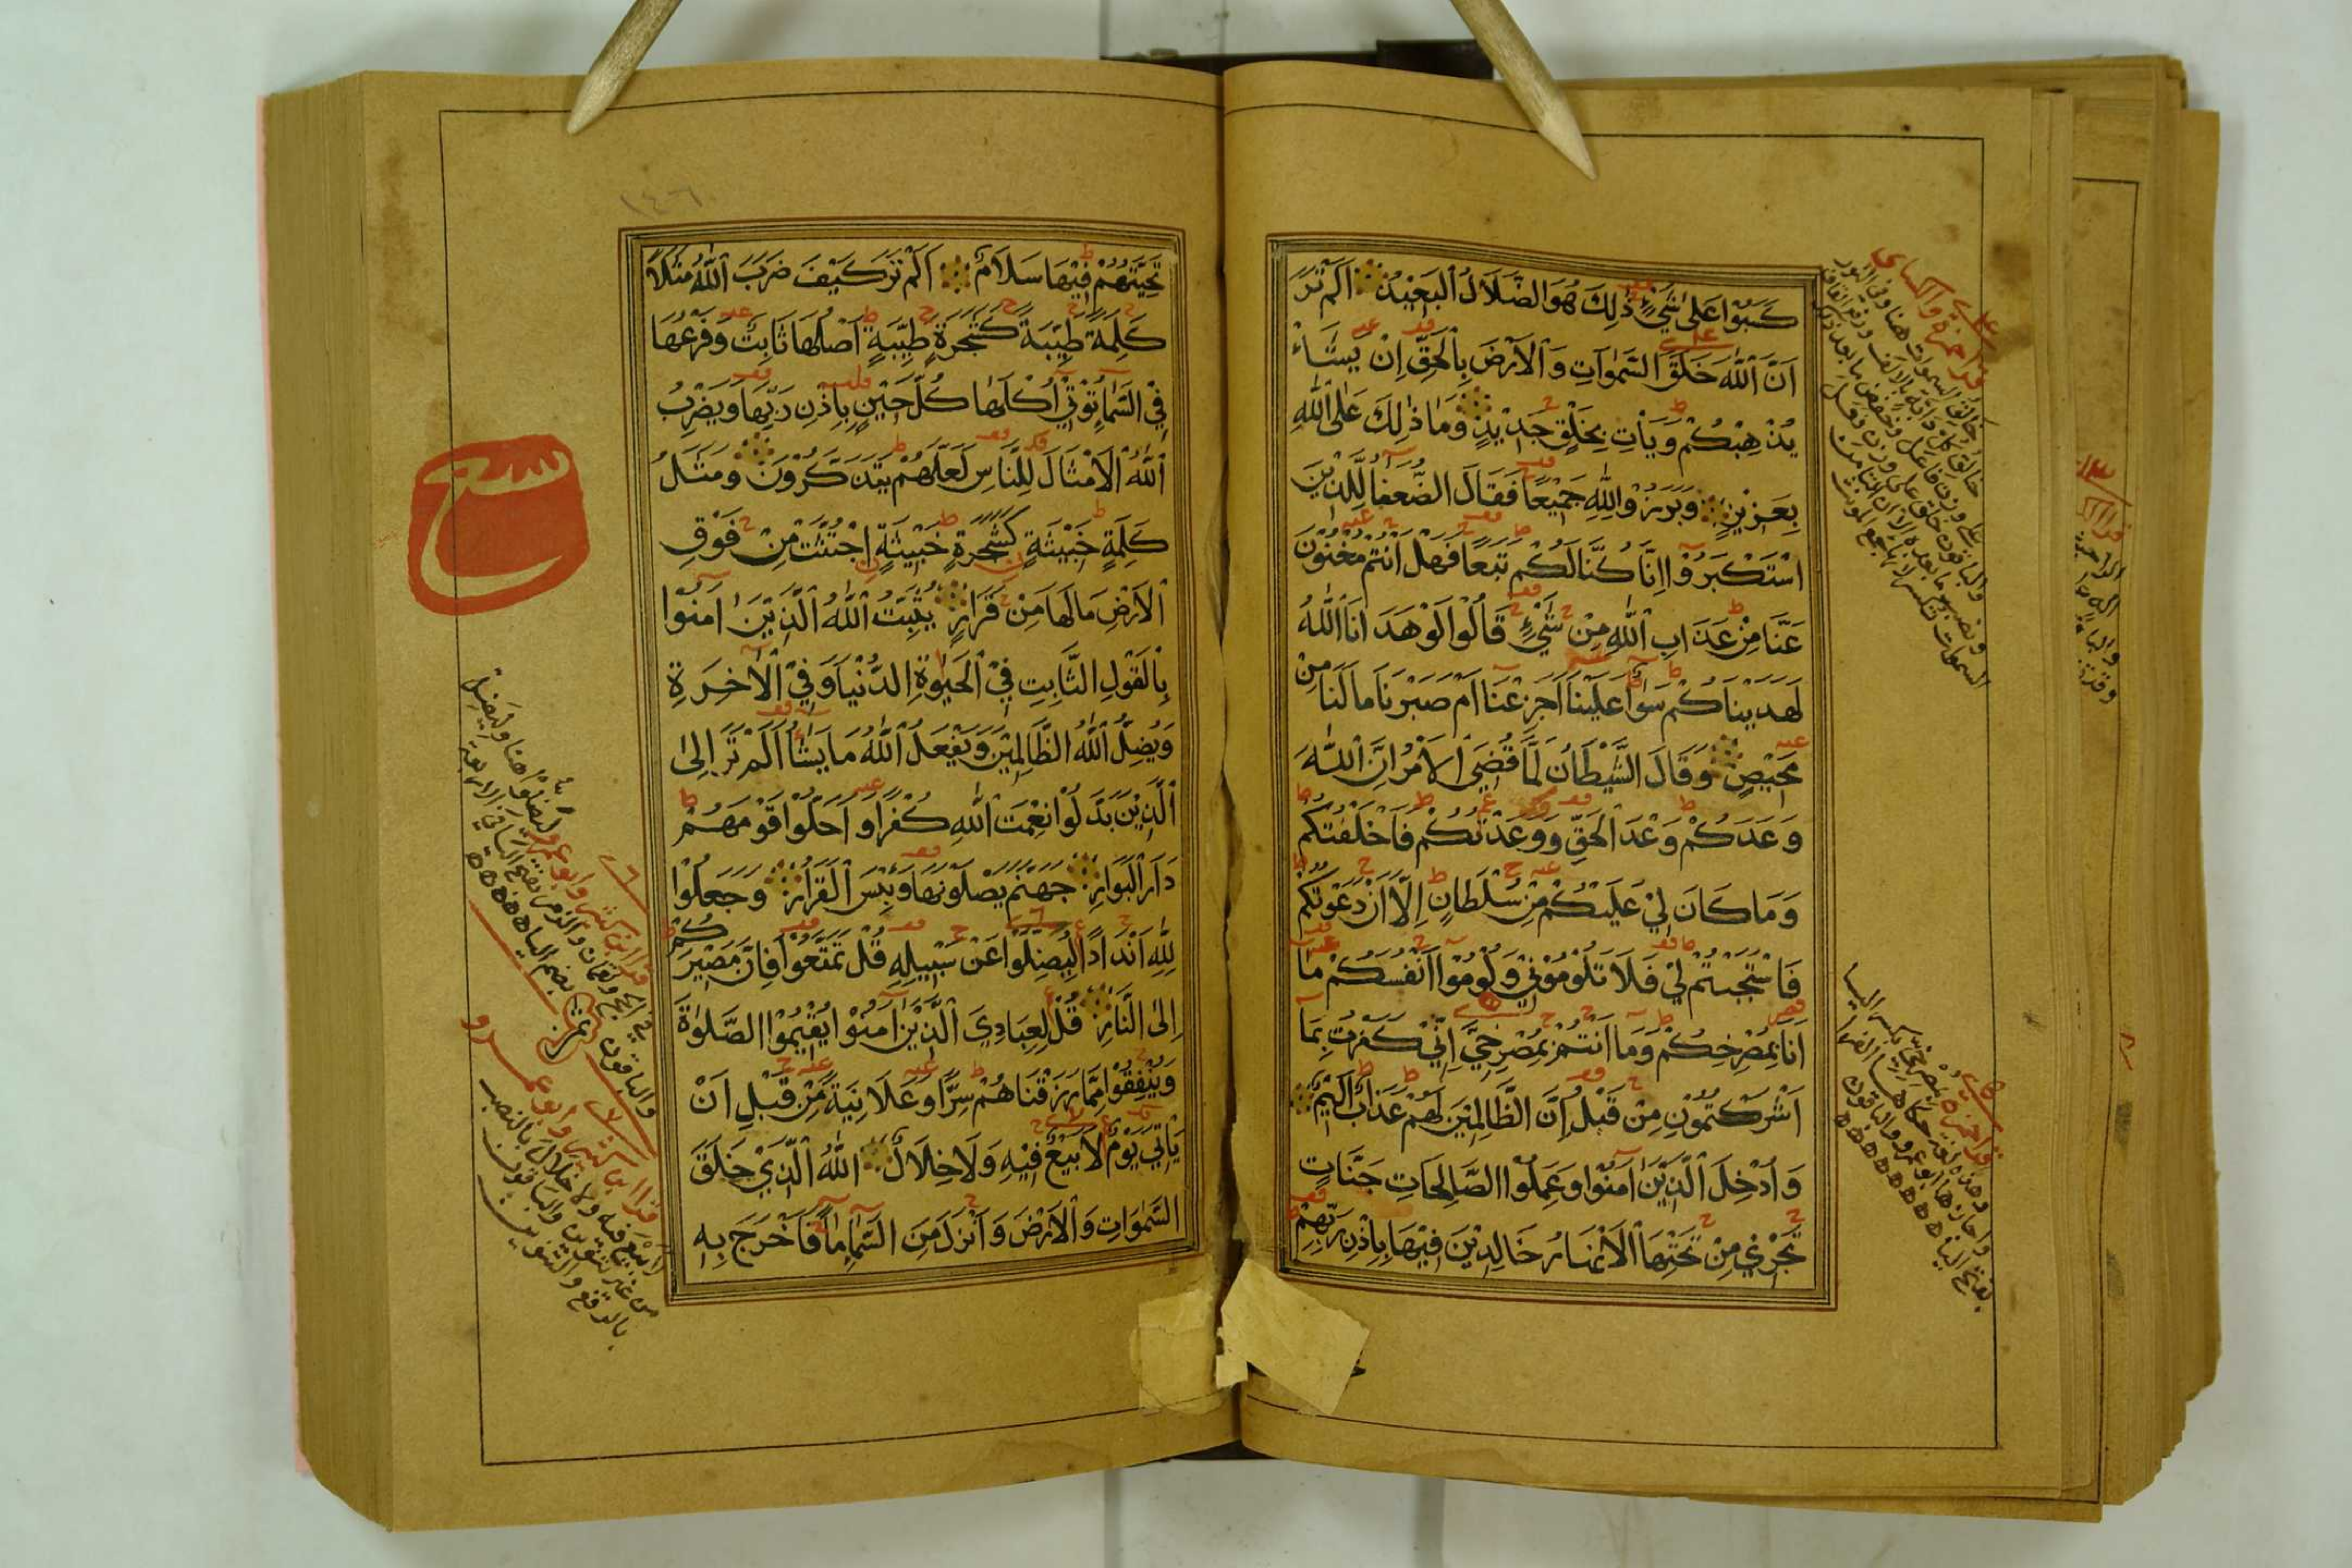 كَسَبُوا عَلَى شَيْءٍ ذَلِكَ هُوَ الضَّلَالُ الْبَعِيْدُ اَلَمْ تَرَ
اَنَّ اللهَ خَلَقَ السَّمٰوَاتِ وَالْاَرْضَ بِالْحَقِّ اِنْ يَشَاْ
يُذْهِبْكُمْ وَيَأْتِ بِخَلْقٍ جَدِيْدٍ وَمَا ذٰلِكَ عَلَى اللهِ
بِعَزِيْزٍ وَبَرَزُوْا لِلّٰهِ جَمِيْعًا فَقَالَ الضُّعَفَا لِلَّذِيْنَ
اسْتَكْبَرُوْا اِنَّا كُنَّا لَكُمْ تَبَعًا فَهَلْ اَنْتُمْ مُغْنُوْنَ
عَنَّا مِنْ عَذَابِ اللهِ مِنْ شَيْءٍ قَالُوْا لَوْ هَدَانَا اللهُ
لَهَدَيْنَاكُمْ سَوَاءٌ عَلَيْنَا اَجَزِعْنَا اَمْ صَبَرْنَا مَا لَنَا مِنْ
مَحِيْصٍ وَقَالَ الشَّيْطَانُ لَمَّا قُضِيَ الْاَمْرُ اِنَّ اللهَ
وَعَدَكُمْ وَعْدَ الْحَقِّ وَوَعَدْتُكُمْ فَاَخْلَفْتُكُمْ
وَمَا كَانَ لِيْ عَلَيْكُمْ مِنْ سُلْطَانٍ اِلَّا اَنْ دَعَوْتُكُمْ
فَاسْتَجَبْتُمْ لِيْ فَلَا تَلُوْمُوْنِيْ وَلُوْمُوْا اَنْفُسَكُمْ مَا
اَنَا بِمُصْرِخِكُمْ وَمَا اَنْتُمْ بِمُصْرِخِيَّ اِنِّيْ كَفَرْتُ بِمَا
اَشْرَكْتُمُوْنِ مِنْ قَبْلُ اِنَّ الظَّالِمِيْنَ لَهُمْ عَذَابٌ اَلِيْمٌ
وَاُدْخِلَ الَّذِيْنَ اٰمَنُوْا وَعَمِلُوْا الصَّالِحَاتِ جَنَّاتٍ
تَجْرِيْ مِنْ تَحْتِهَا الْاَنْهَارُ خَالِدِيْنَ فِيْهَا بِاِذْنِ رَبِّهِمْ
قرا حمزة والكسائي
قرا حمزة بمصرخي بكسر اليا
بفتح اليا
١٤٦
تَحِيَّتُهُمْ فِيْهَا سَلَامٌ اَلَمْ تَرَ كَيْفَ ضَرَبَ اللهُ مَثَلًا
كَلِمَةً طَيِّبَةً كَشَجَرَةٍ طَيِّبَةٍ اَصْلُهَا ثَابِتٌ وَفَرْعُهَا
فِي السَّمَاءِ تُؤْتِيْ اُكُلَهَا كُلَّ حِيْنٍ بِاِذْنِ رَبِّهَا وَيَضْرِبُ
اللهُ الْاَمْثَالَ لِلنَّاسِ لَعَلَّهُمْ يَتَذَكَّرُوْنَ وَمَثَلُ
كَلِمَةٍ خَبِيْثَةٍ كَشَجَرَةٍ خَبِيْثَةٍ اجْتُثَّتْ مِنْ فَوْقِ
الْاَرْضِ مَا لَهَا مِنْ قَرَارٍ يُثَبِّتُ اللهُ الَّذِيْنَ اٰمَنُوْا
بِالْقَوْلِ الثَّابِتِ فِيْ الْحَيٰوةِ الدُّنْيَا وَفِيْ الْاٰخِرَةِ
وَيُضِلُّ اللهُ الظَّالِمِيْنَ وَيَفْعَلُ اللهُ مَا يَشَاءُ اَلَمْ تَرَ اِلَى
الَّذِيْنَ بَدَّلُوْا نِعْمَتَ اللهِ كُفْرًا وَاَحَلُّوْا قَوْمَهُمْ
دَارَ الْبَوَارِ جَهَنَّمَ يَصْلَوْنَهَا وَبِئْسَ الْقَرَارُ وَجَعَلُوْا
لِلّٰهِ اَنْدَادًا لِيُضِلُّوْا عَنْ سَبِيْلِهِ قُلْ تَمَتَّعُوْا فَاِنَّ مَصِيْرَكُمْ
اِلَى النَّارِ قُلْ لِعِبَادِيَ الَّذِيْنَ اٰمَنُوْا يُقِيْمُوْا الصَّلٰوةَ
وَيُنْفِقُوْا مِمَّا رَزَقْنَاهُمْ سِرًّا وَعَلَانِيَةً مِنْ قَبْلِ اَنْ
يَأْتِيَ يَوْمٌ لَا بَيْعٌ فِيْهِ وَلَا خِلَالٌ اللهُ الَّذِيْ خَلَقَ
السَّمٰوَاتِ وَالْاَرْضَ وَاَنْزَلَ مِنَ السَّمَاءِ مَاءً فَاَخْرَجَ بِهِ
قرا ابن كثير وابو عمرو ليضلوا هنا وليضل
في الحج ولقمان والزمر بفتح اليا في الاربعة
والباقون بضم اليا
قرا ابن كثير وابو عمرو
لا بيع فيه ولا خلال بالنصب
من غير تنوين والباقون
بالرفع والتنوين